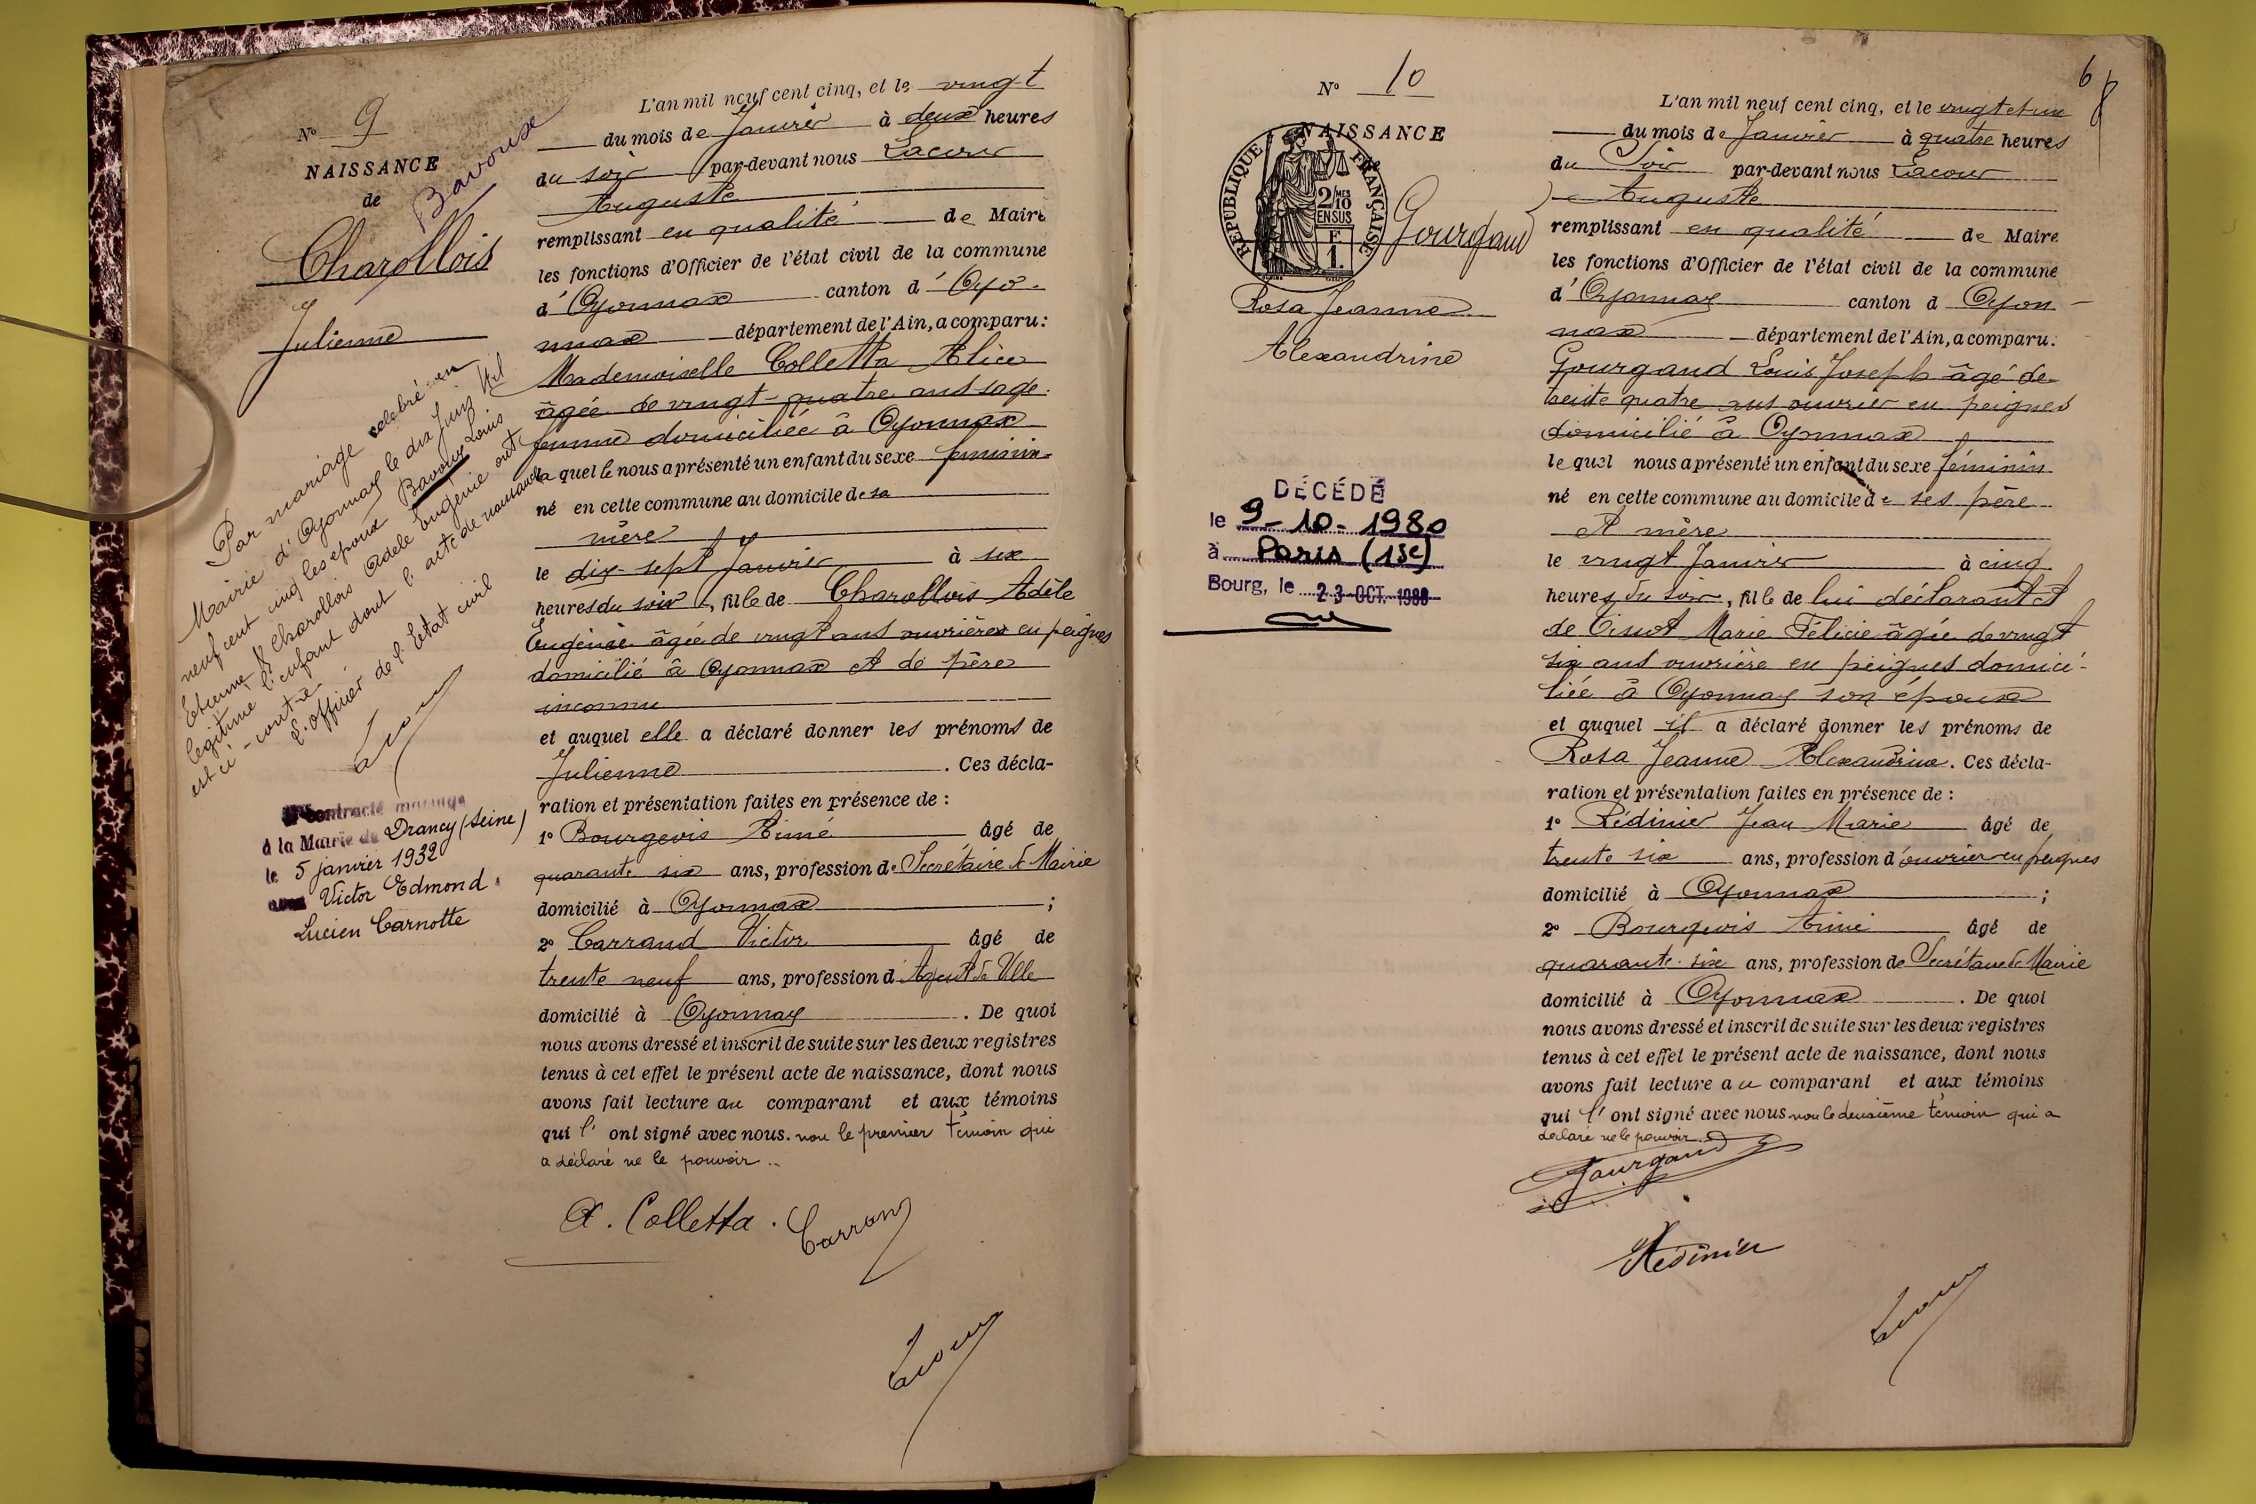 N° 9
NAISSANCE
de
Bavoux
Charollois
Julienne
Par mariage celebré en
Mairie d'Oyonnax le dix Juin Mil
neuf cent cinq les epoux Bavoux Louis
Etienne & Charollois Adele Eugénie ont
legitimé l'enfant dont l'acte de naissance
est ci-contre.
L'officier de l'Etat civil
Lacour
A contracté mariage
à la Mairie de Drancy (Seine)
le 5 janvier 1932
avec Victor Edmond
Lucien Carnotte
L'an mil neuf cent cinq, et le vingt
du mois de Janvier à deux heures
du soir par-devant nous Lacour
Auguste
remplissant en qualité de Maire
les fonctions d'Officier de l'état civil de la commune
d'Oyonnax canton d'Oyo-
nnax département de l'Ain, a comparu :
Mademoiselle Colletta Alice
âgée de vingt-quatre ans sage-
femme domiciliée à Oyonnax
laquelle nous a présenté un enfant du sexe féminin
né en cette commune au domicile de sa
mère
le dix-sept Janvier à six
heures du soir, fille de Charollois Adèle
Eugénie âgée de vingt ans ouvrière en peignes
domicilié à Oyonnax et de père
inconnu
et auquel elle a déclaré donner les prénoms de
Julienne . Ces décla-
ration et présentation faites en présence de :
1° Bourgeois Aimé âgé de
quarante six ans, profession de Secrétaire de Mairie
domicilié à Oyonnax ;
2° Carrand Victor âgé de
trente neuf ans, profession d'Agent de Ville
domicilié à Oyonnax . De quoi
nous avons dressé et inscrit de suite sur les deux registres
tenus à cet effet le présent acte de naissance, dont nous
avons fait lecture au comparant et aux témoins
qui l'ont signé avec nous. non le premier témoin qui
a déclaré ne le pouvoir..
A. Colletta. Carrand
Lacour
6
8
N° 10
NAISSANCE
RÉPUBLIQUE FRANÇAISE
2/10 MES
EN SUS
F.
1.
Gourgaud
Rosa Jeanne
Alexandrine
DÉCÉDÉ
le 9-10-1980
à Paris (15e)
Bourg, le 23 OCT. 1980
L'an mil neuf cent cinq, et le vingt et un
du mois de Janvier à quatre heures
du Soir par-devant nous Lacour
Auguste
remplissant en qualité de Maire
les fonctions d'Officier de l'état civil de la commune
d'Oyonnax canton d Oyon-
nax département de l'Ain, a comparu :
Gourgaud Louis Joseph âgé de
trente quatre ans ouvrier en peignes
domicilié à Oyonnax
lequel nous a présenté un enfant du sexe féminin
né en cette commune au domicile de ses père
et mère
le vingt Janvier à cinq
heures du soir, fille de lui déclarant et
de Tissot Marie Félicie âgée de vingt
six ans ouvrière en peignes domici-
liée à Oyonnax son épouse
et auquel il a déclaré donner les prénoms de
Rosa Jeanne Alexandrine. Ces décla-
ration et présentation faites en présence de :
1° Rédinier Jean Marie âgé de
trente six ans, profession d'ouvrier en peignes
domicilié à Oyonnax ;
2° Bourgeois Aimé âgé de
quarante-six ans, profession de Secrétaire de Mairie
domicilié à Oyonnax . De quoi
nous avons dressé et inscrit de suite sur les deux registres
tenus à cet effet le présent acte de naissance, dont nous
avons fait lecture au comparant et aux témoins
qui l'ont signé avec nous non le deuxième témoin qui a
déclaré ne le pouvoir.
Gourgaud
Rédinier
Lacour